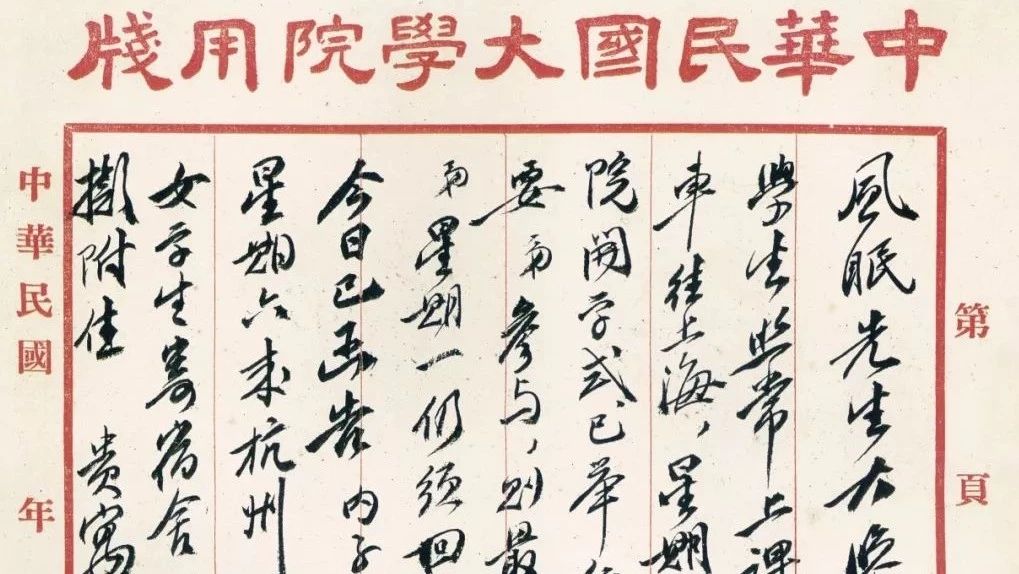 中華民國大學院用牋
第 頁
風眠先生大鑒
學生照常上課
車往上海，星期
院開学式已舉行
要弟參与，則最
弟星期一仍須回
今日已函告內子
星期六來杭州
女学生寄宿舍
擬附住 貴寓
中華民國 年